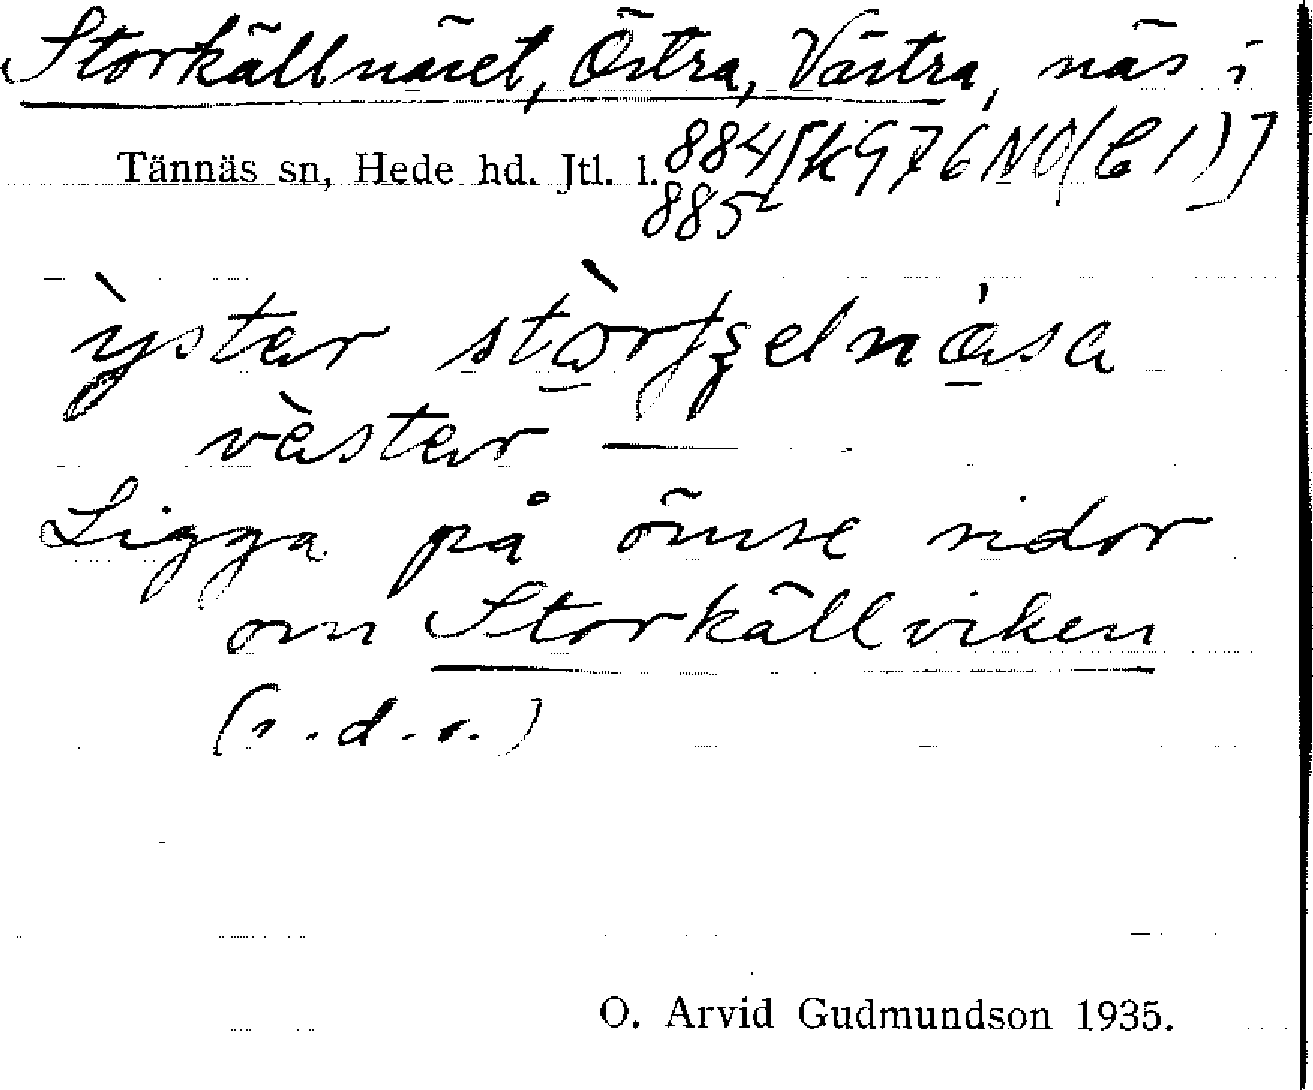 Storkällnäset, Östra, Västra, näs i
Tännäs sn, Hede hd. Jtl. l. 884 [K 976 NO (C 1)]
885
ỳster
vèster —
Ligga på ömse sidor
om Storkällviken
(s.d.o.)
O. Arvid Gudmundson 1935.